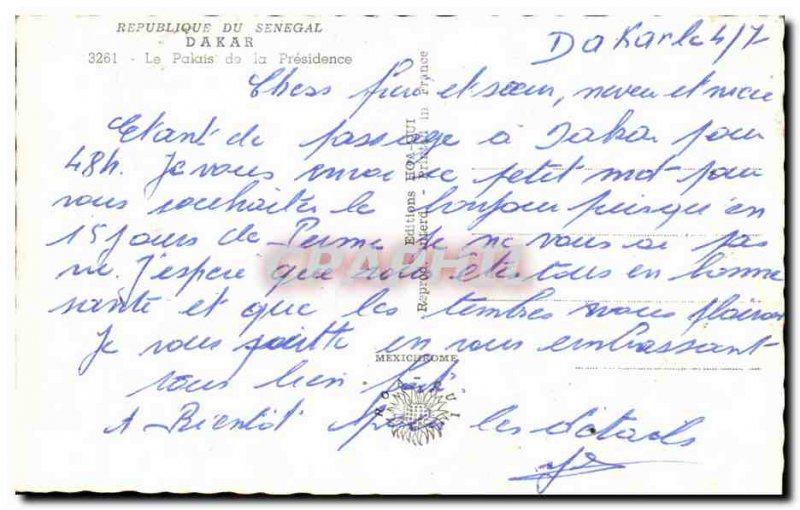 REPUBLIQUE DU SENEGAL
DAKAR
3261 - Le Palais de la Présidence
Dakar le 4/7
Chers frère et sœur, neveu et nièce
Etant de passage à Dakar pour
48h. Je vous envoi ce petit mot pour
vous souhaiter le bonjour puisqu'en
15 jours de Perme je ne vous ai pas
vu. J'espère que vous etes tous en bonne
santé et que les timbres vous plaisent
Je vous quitte en vous embrassant
tous bien fort.
A Bientôt les détails
MEXICHROME
HOA-QUI
Editions HOA-QUI
Reprod. Interd. - Printed in France